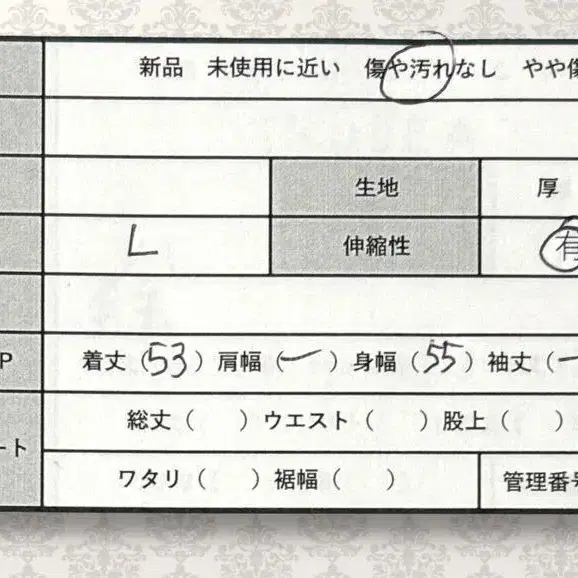 新品 未使用に近い 傷や汚れなし やや傷
生地 厚
L 伸縮性 有
P 着严(53) 肩幅(ー) 身幅(55) 袖丈(ー
総丈( ) ウエスト( ) 股上( )
ート
ワタリ( ) 裾幅( ) 管理番号